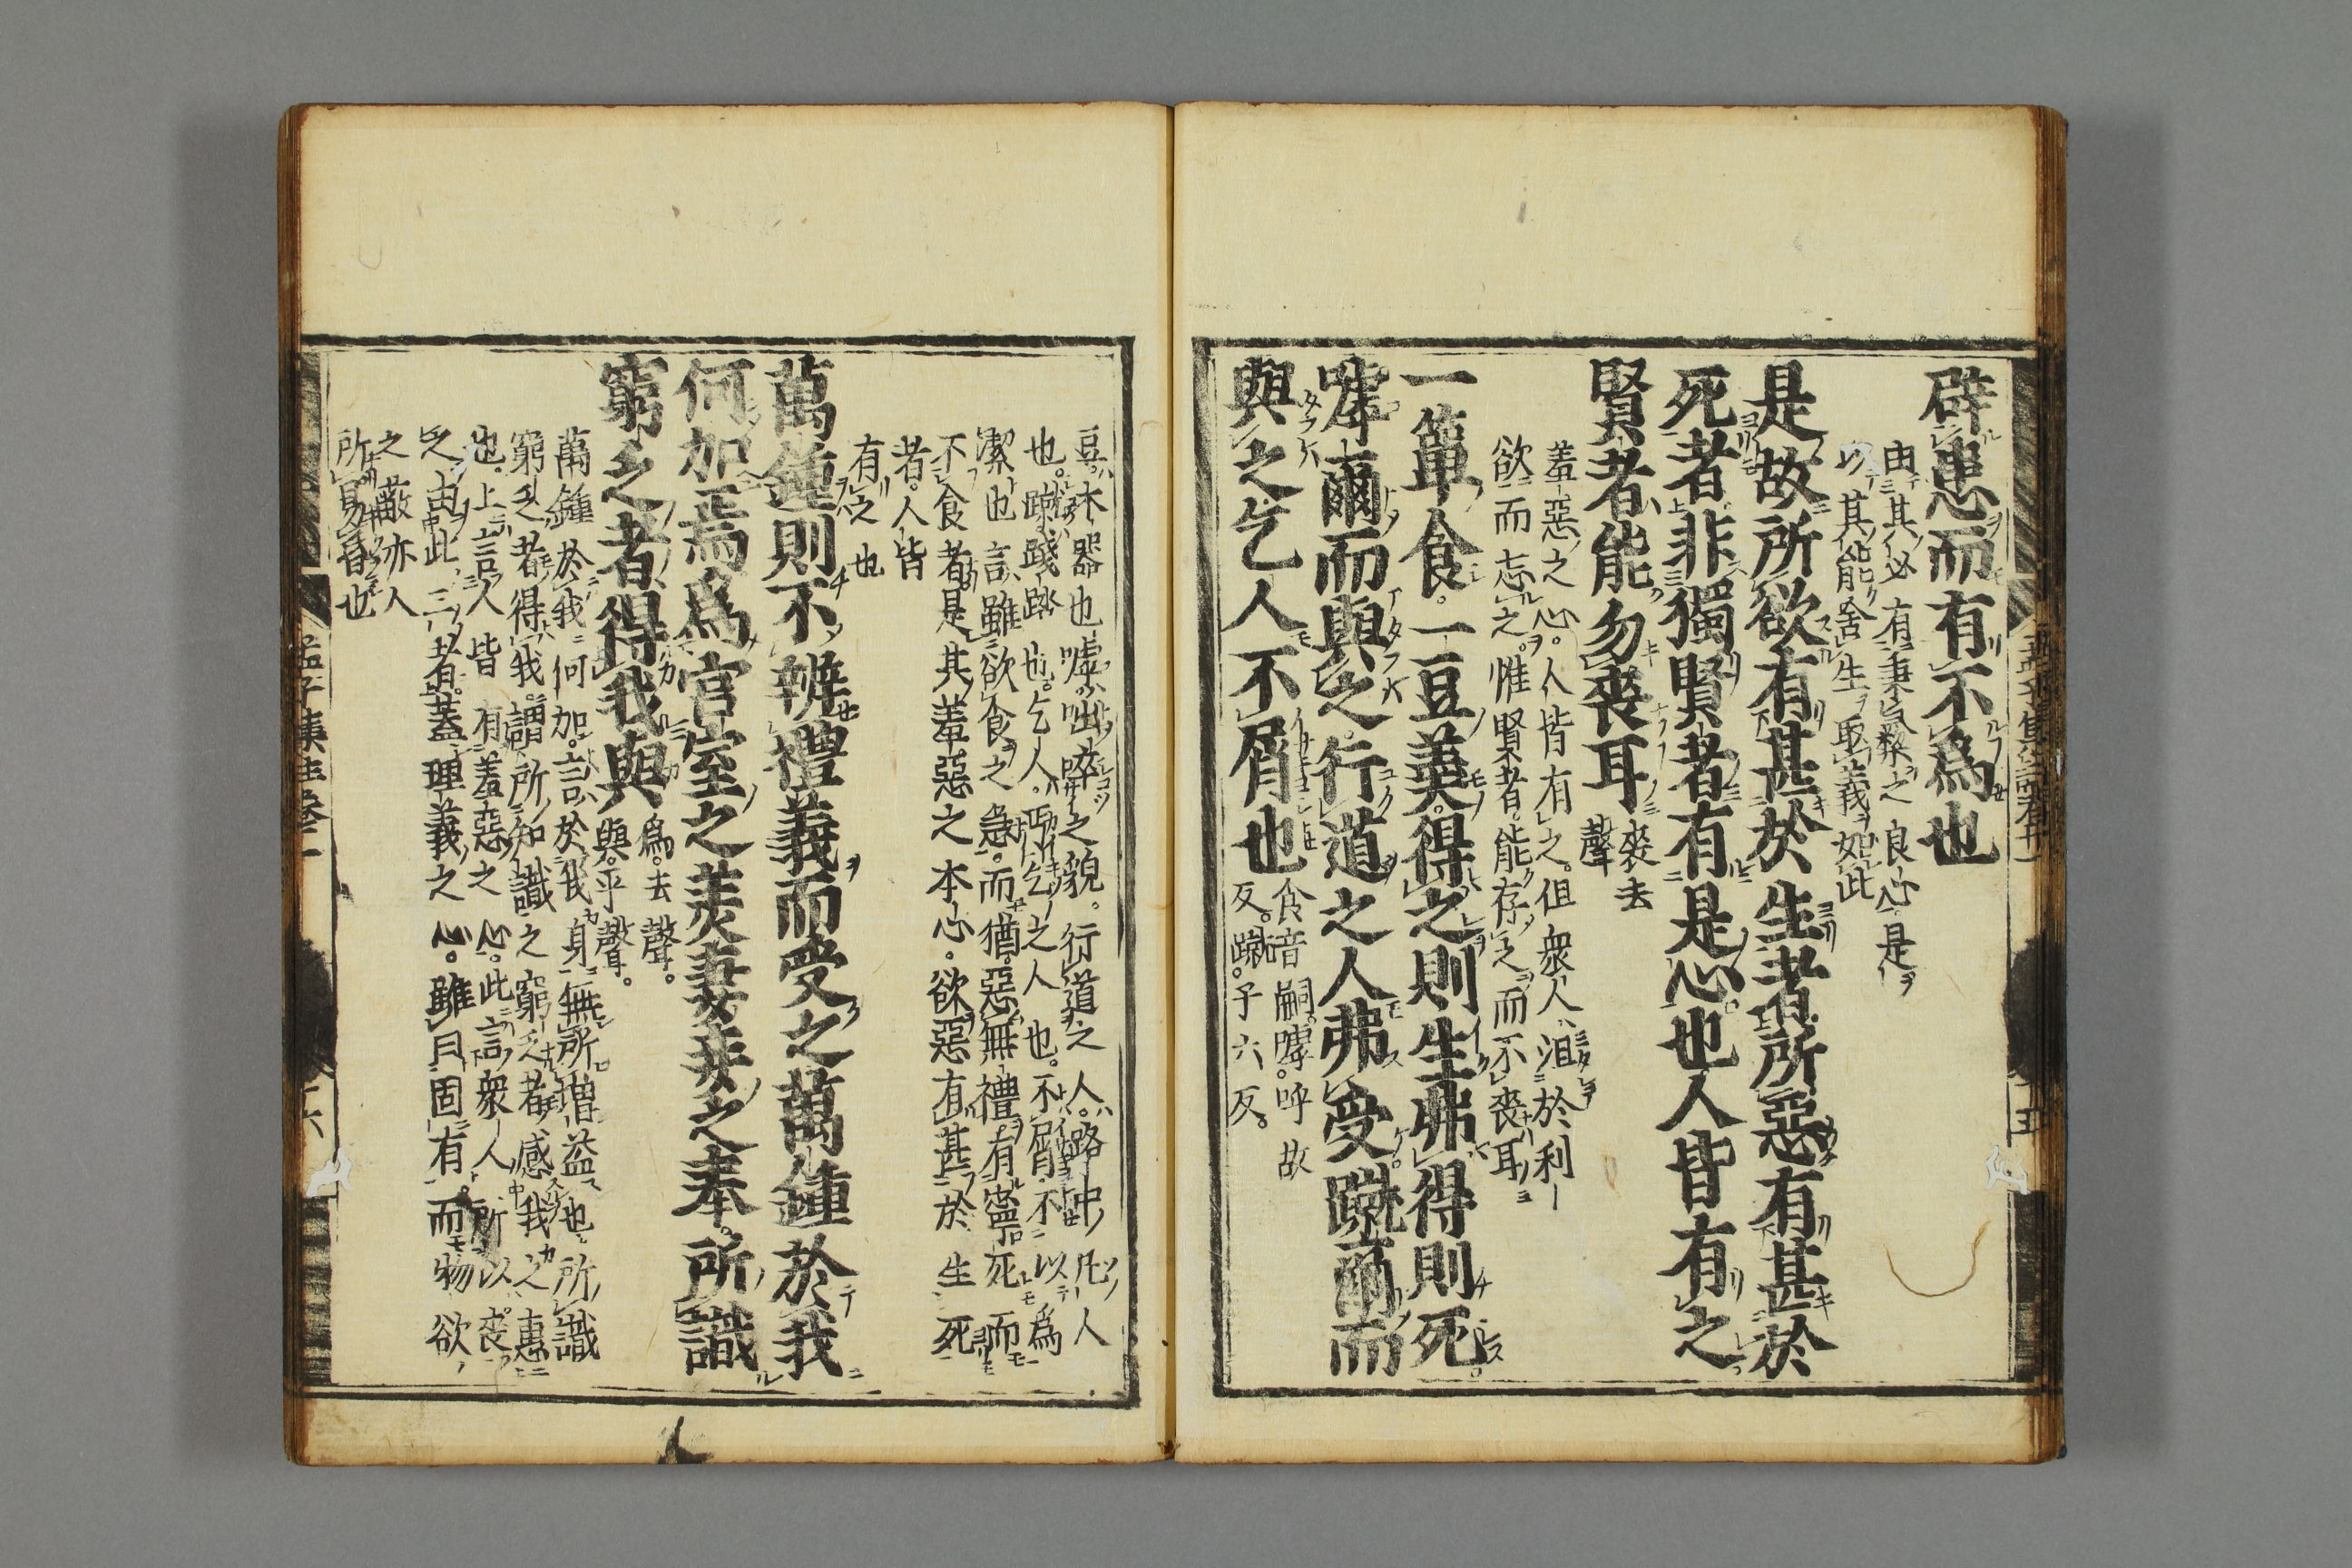 辟患而有不爲也
由其必有秉彝之良心是
以其能舍生取義如此
是故所欲有甚於生者所惡有甚於
死者非獨賢者有是心也人皆有之
賢者能勿喪耳
喪去
聲
羞惡之心。人皆有之。但衆人汨於利
欲而忘之。惟賢者能存之而不喪耳
一簞食。一豆羹。得之則生弗得則死。
嘑爾而與之行道之人弗受蹴爾而
與之乞人不屑也
食音嗣嘑。呼故
反。蹴。子六反。
豆。木器也嘑。咄啐之貌。行道之人。路中凡人
也。蹴。踐踏也。乞人。丐乞之人也。不屑。不以爲
潔也言雖欲食之急。而猶惡無禮有寧死而
不食者是其羞惡之本心。欲惡有甚於生死
者。人皆
有之也
萬鍾則不辨禮義而受之萬鍾於我
何加焉爲宮室之美妻妾之奉。所識
窮乏者得我與
爲。去聲。
與。平聲。
萬鍾於我何加。言於我身無所增益也。所識
窮乏者得我。謂所知識之窮乏者感我之惠
也。上言人皆有羞惡之心。此言衆人所以喪
之由此三者。蓋理義之心。雖曰固有。而物欲
之蔽亦人
所易昏也